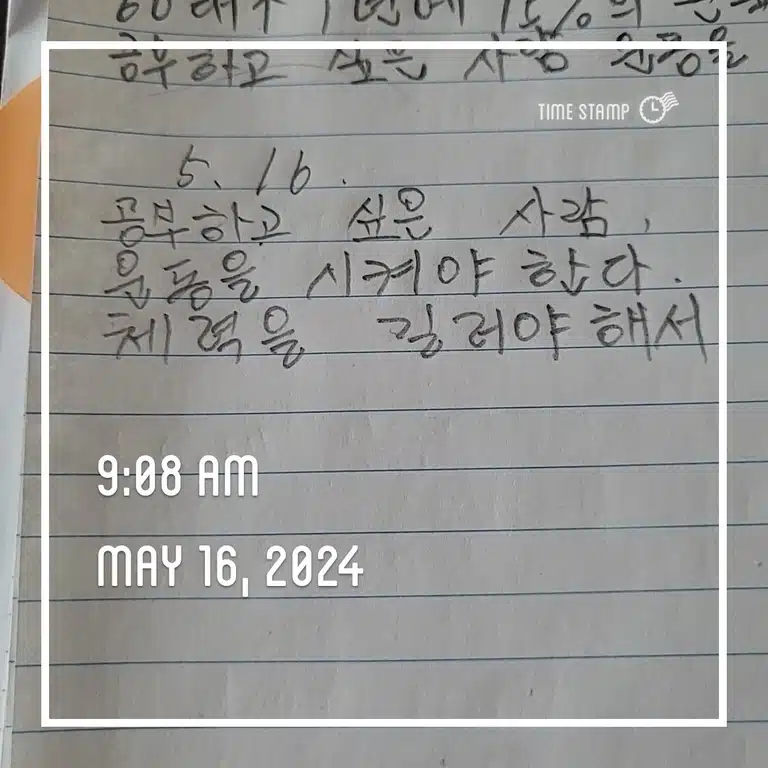 60대부터 1년에 15%의 근육
공부하고 싶은 사람 운동을
TIME STAMP
5. 16.
공부하고 싶은 사람,
운동을 시켜야 한다.
체력을 길러야 해서
9:08 AM
MAY 16, 2024